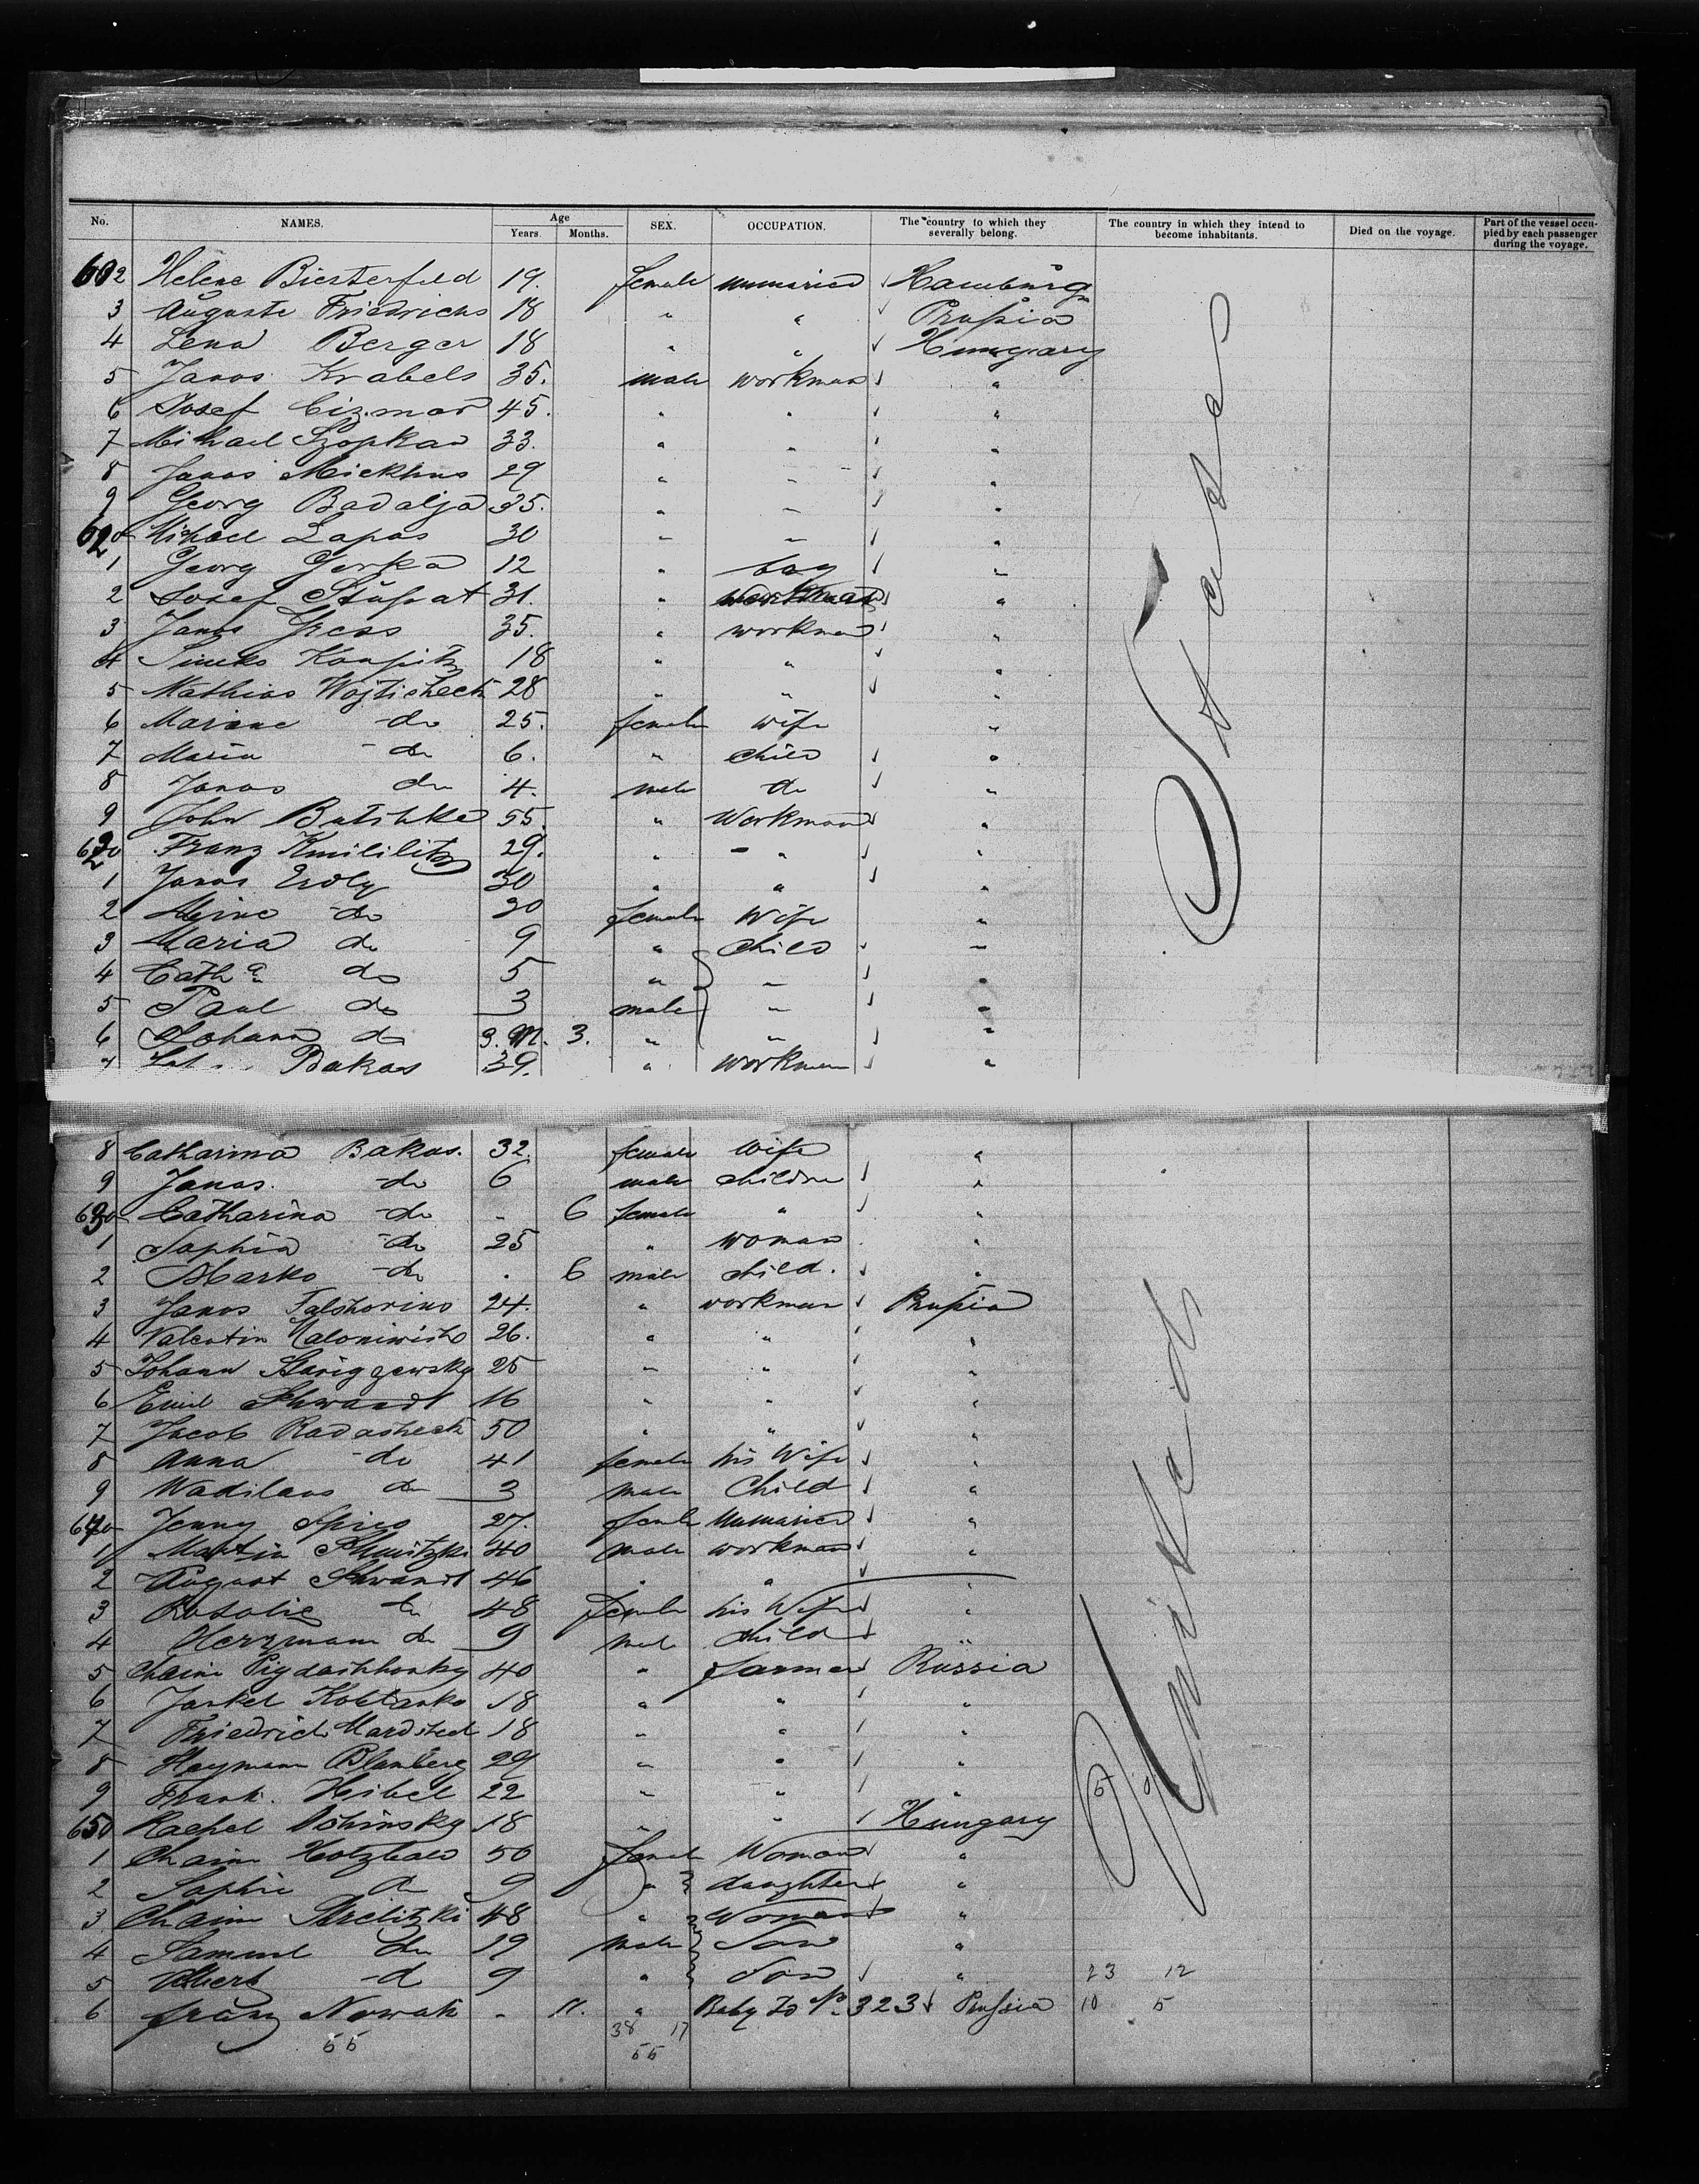 No. NAMES. Age Years. Months. SEX. OCCUPATION. The country to which they severally belong. The country in which they intend to become inhabitants. Died on the voyage. Part of the vessel occupied by each passenger during the voyage.
602 Helene Biesterfeld 19. female unmaried Hamburg
3 Auguste Friedrichs 18 " " Prussia
4 Lena Berger 18 " " Hungary
5 Janos Krabels 35. male workman "
6 Josef Cizmar 45. " " "
7 Michael Szopkan 33. " " "
8 Janos 29 " " "
9 Georg Badalja 35. " " "
620 Michael Lapas 30 " " "
1 Georg 12 " boy "
2 Josef 31. " "
3 Janos 35. " workman "
4 18 " " "
5 Mathias Wojtischeck 28 " " "
6 Mariane do 25. female wife "
7 Maria do 6. " child "
8 Janos do 4. male do "
9 John Butshka 55 " Workman "
620 Franz 29. " " "
1 Janos Erdly 30 " " "
2 do 30 female Wife "
3 Maria do 9 " child "
4 Catha do 5 " " "
5 Paul do 3 male " "
6 Johann do 3. M. 3. " " "
7 Bakas 39. " workman "
8 Catharina Bakas. 32. female wife "
9 Janos. do 6 male children "
630 Catharina do - 6 female " "
1 Sophia do 25 " woman "
2 Marko do . 6 male child. "
3 Janos 24. " workman Prussia
4 Valentin 26. " " "
5 Johann 25 " " "
6 Emil Schwandt 16 " " "
7 Jacob Radasheck 50 " " "
8 Anna do 41 female his Wife "
9 Wadilaus do 3 male Child "
640 Jenny Spiro 27. female Unmaried "
1 Martin 40 male workman "
2 August Schwandt 46 " " "
3 Rosalie do 48 female his Wife "
4 Herrmann do 9 male child
5 Chaim 40 " farmer Russia
6 Jankel 18 " " "
7 Friedrich 18 " " "
8 Heymann Blumberg 29 " " "
9 Frank. Heibel 22 " " "
650 Rachel 18 " " Hungary
1 Chaim 50 female Woman "
2 Sophie do 9 " daughter "
3 Chaim Strelitzki 48 " Woman "
4 Samuel do 19 male Son "
5 Albert do 9 " Son " 23 12
6 Franz Nowak - 11. " Baby to No 323 Prussia 10 5
55 38 17
55
United States